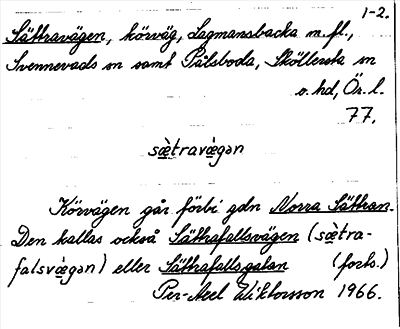 1-2.
Sättravägen, körväg, Lagmansbacka m.fl.,
Svennevads sn samt Pålsboda, Sköllersta sn
o. hd, Ör. l.
77.
sæ̀travæ̀gən
Körvägen går förbi gdn Norra Sättran.
Den kallas också Sättrafallsvägen (sæ̀tra-
falsvæ̀gən) eller Sättrafallsgatan (forts.)
Per-Axel Wiktorsson 1966.